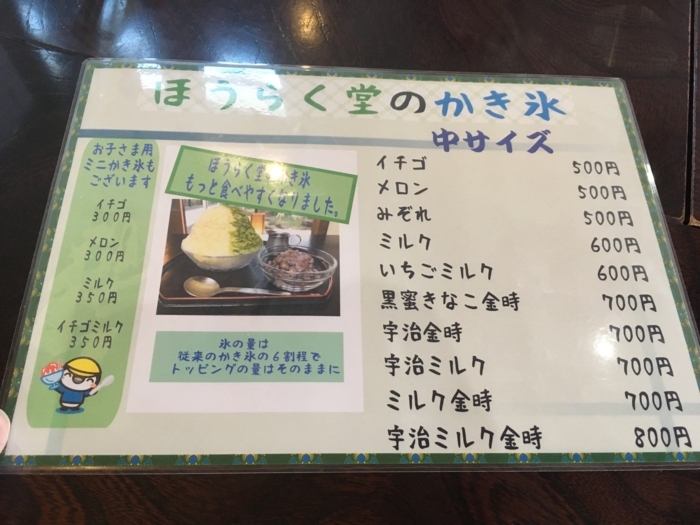 ほうらく堂のかき氷
中サイズ
お子さま用
ミニかき氷も
ございます
イチゴ
300円
メロン
300円
ミルク
350円
イチゴミルク
350円
ほうらく堂のかき氷
もっと食べやすくなりました。
氷の量は
従来のかき氷の6割程で
トッピングの量はそのままに
イチゴ 500円
メロン 500円
みぞれ 500円
ミルク 600円
いちごミルク 600円
黒蜜きなこ金時 700円
宇治金時 700円
宇治ミルク 700円
ミルク金時 700円
宇治ミルク金時 800円